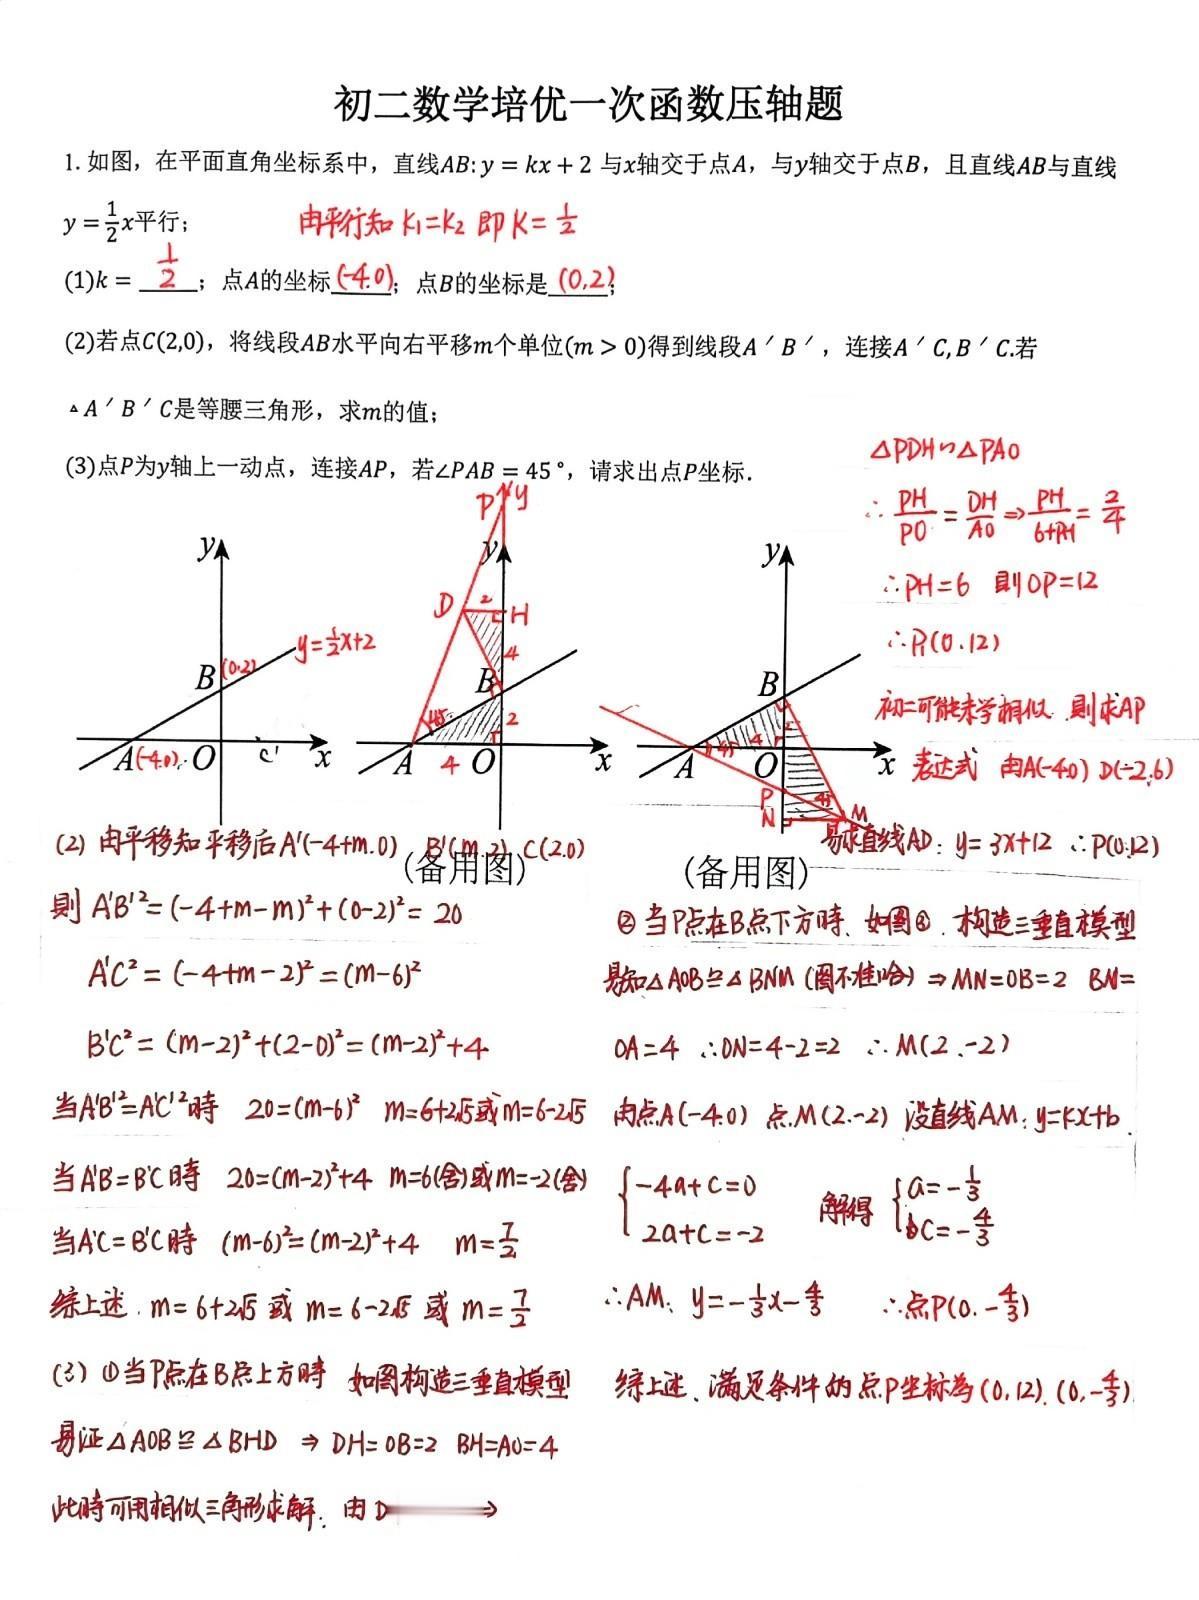 初二数学培优一次函数压轴题
1. 如图，在平面直角坐标系中，直线AB: y = kx + 2 与x轴交于点A，与y轴交于点B，且直线AB与直线
y = 1/2 x平行；
由平行知 K₁=K₂ 即 K = 1/2
(1)k = 1/2 ；点A的坐标(-4.0)；点B的坐标是 (0,2)；
(2)若点C(2,0)，将线段AB水平向右平移m个单位(m > 0)得到线段A′B′，连接A′C, B′C.若
▵A′B′C是等腰三角形，求m的值；
(3)点P为y轴上一动点，连接AP，若∠PAB = 45°，请求出点P坐标.
y
B (0.2)
y=1/2x+2
A (-4.0) O C' x
P y
y
D 2 H
4
B
45°
2
A 4 O x
(备用图)
y
B
2
A 45° 4 O x
P
N 45 M
(备用图)
△PDH∽△PAO
∴ PH/PO = DH/AO ⇒ PH/6+PH = 2/4
∴PH=6 則OP=12
∴P₁(0.12)
初二可能未学相似 則求AP
表达式 由A(-4.0) D(-2.6)
易求直线AD: y= 3x+12 ∴P(0.12)
(2) 由平移知平移后A'(-4+m.0) B'(m.2) C(2.0)
則 A'B'²= (-4+m-m)²+(0-2)²= 20
A'C² = (-4+m-2)² = (m-6)²
B'C² = (m-2)²+(2-0)² = (m-2)²+4
当A'B'²=A'C'²時 20=(m-6)² m=6+2√5或m=6-2√5
当A'B=B'C時 20=(m-2)²+4 m=6(舍)或m=-2(舍)
当A'C=B'C時 (m-6)²=(m-2)²+4 m=7/2
综上述. m= 6+2√5 或 m= 6-2√5 或 m= 7/2
(3) ①当P点在B点上方時 如图构造三垂直模型
易证△AOB≌△BHD ⇒ DH=OB=2 BH=AO=4
此時可用相似三角形求解. 由D ⇒
②当P点在B点下方時、如图②. 构造三垂直模型
易知△AOB≌△BNM (图不准哈) ⇒ MN=OB=2 BN=
OA=4 ∴ON=4-2=2 ∴M(2.-2)
由点A(-4.0) 点M(2.-2) 设直线AM: y=kx+b.
{-4a+c=0 2a+c=-2 解得 {a=-1/3 bc=-4/3
∴AM: y=-1/3x-4/3 ∴点P(0.-4/3)
综上述、满足条件的点P坐标為(0,12). (0,-4/3)